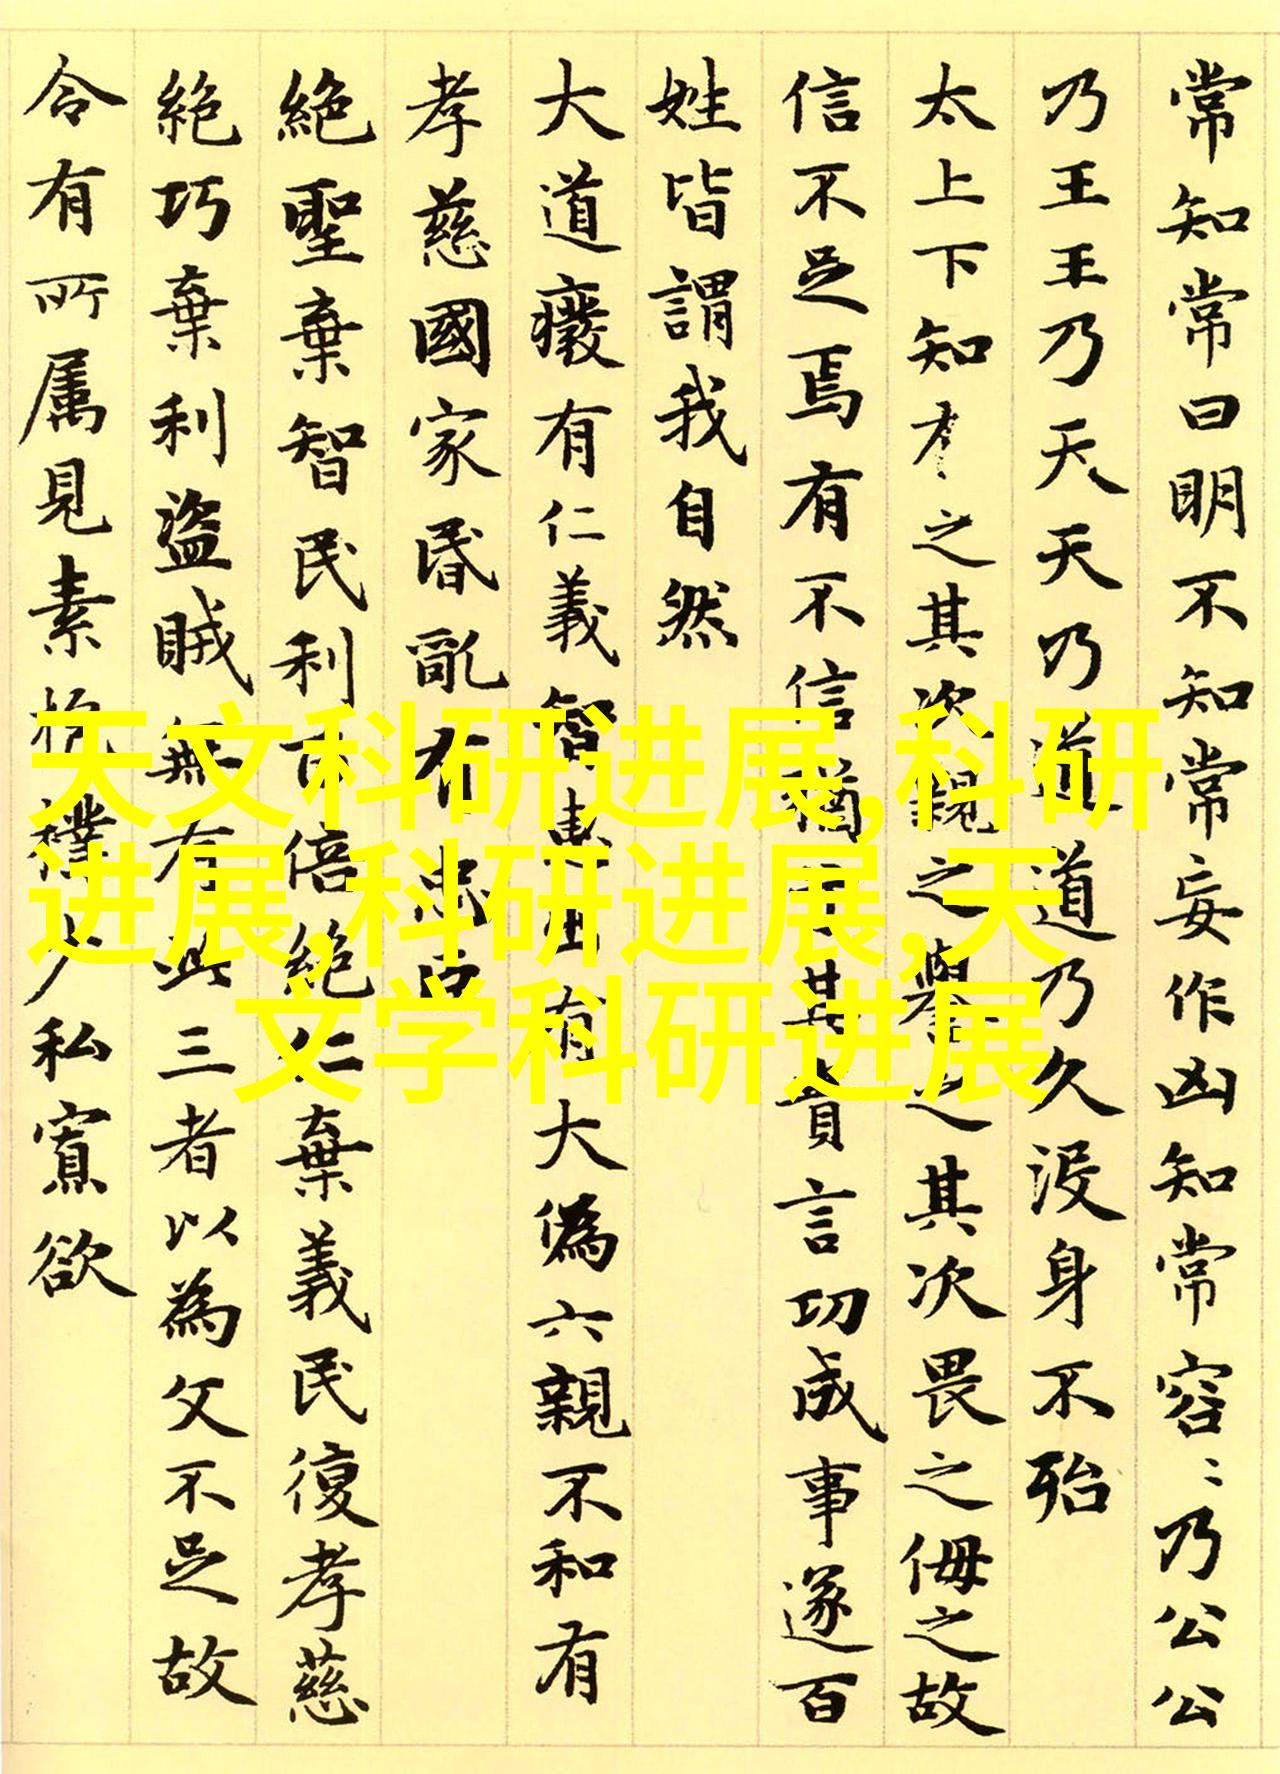 常知常曰明不知知常妄作凶知常容〻乃公公
乃王王乃天天乃道道乃久没身不殆
太上下知有之其次親之譽之其次畏之侮之故
信不足焉有不信猶其貴言功成事遂百
姓皆謂我自然
大道癈有仁義智惠出有大偽六親不和有
孝慈國家昏亂有忠臣
絶聖棄智民利百倍絶仁棄義民復孝慈
絶巧棄利盜賊無有此三者以為文不足故
令有所属見素抱樸少私寡欲
天文科研进展,科研
进展,科研进展,天
文学科研进展